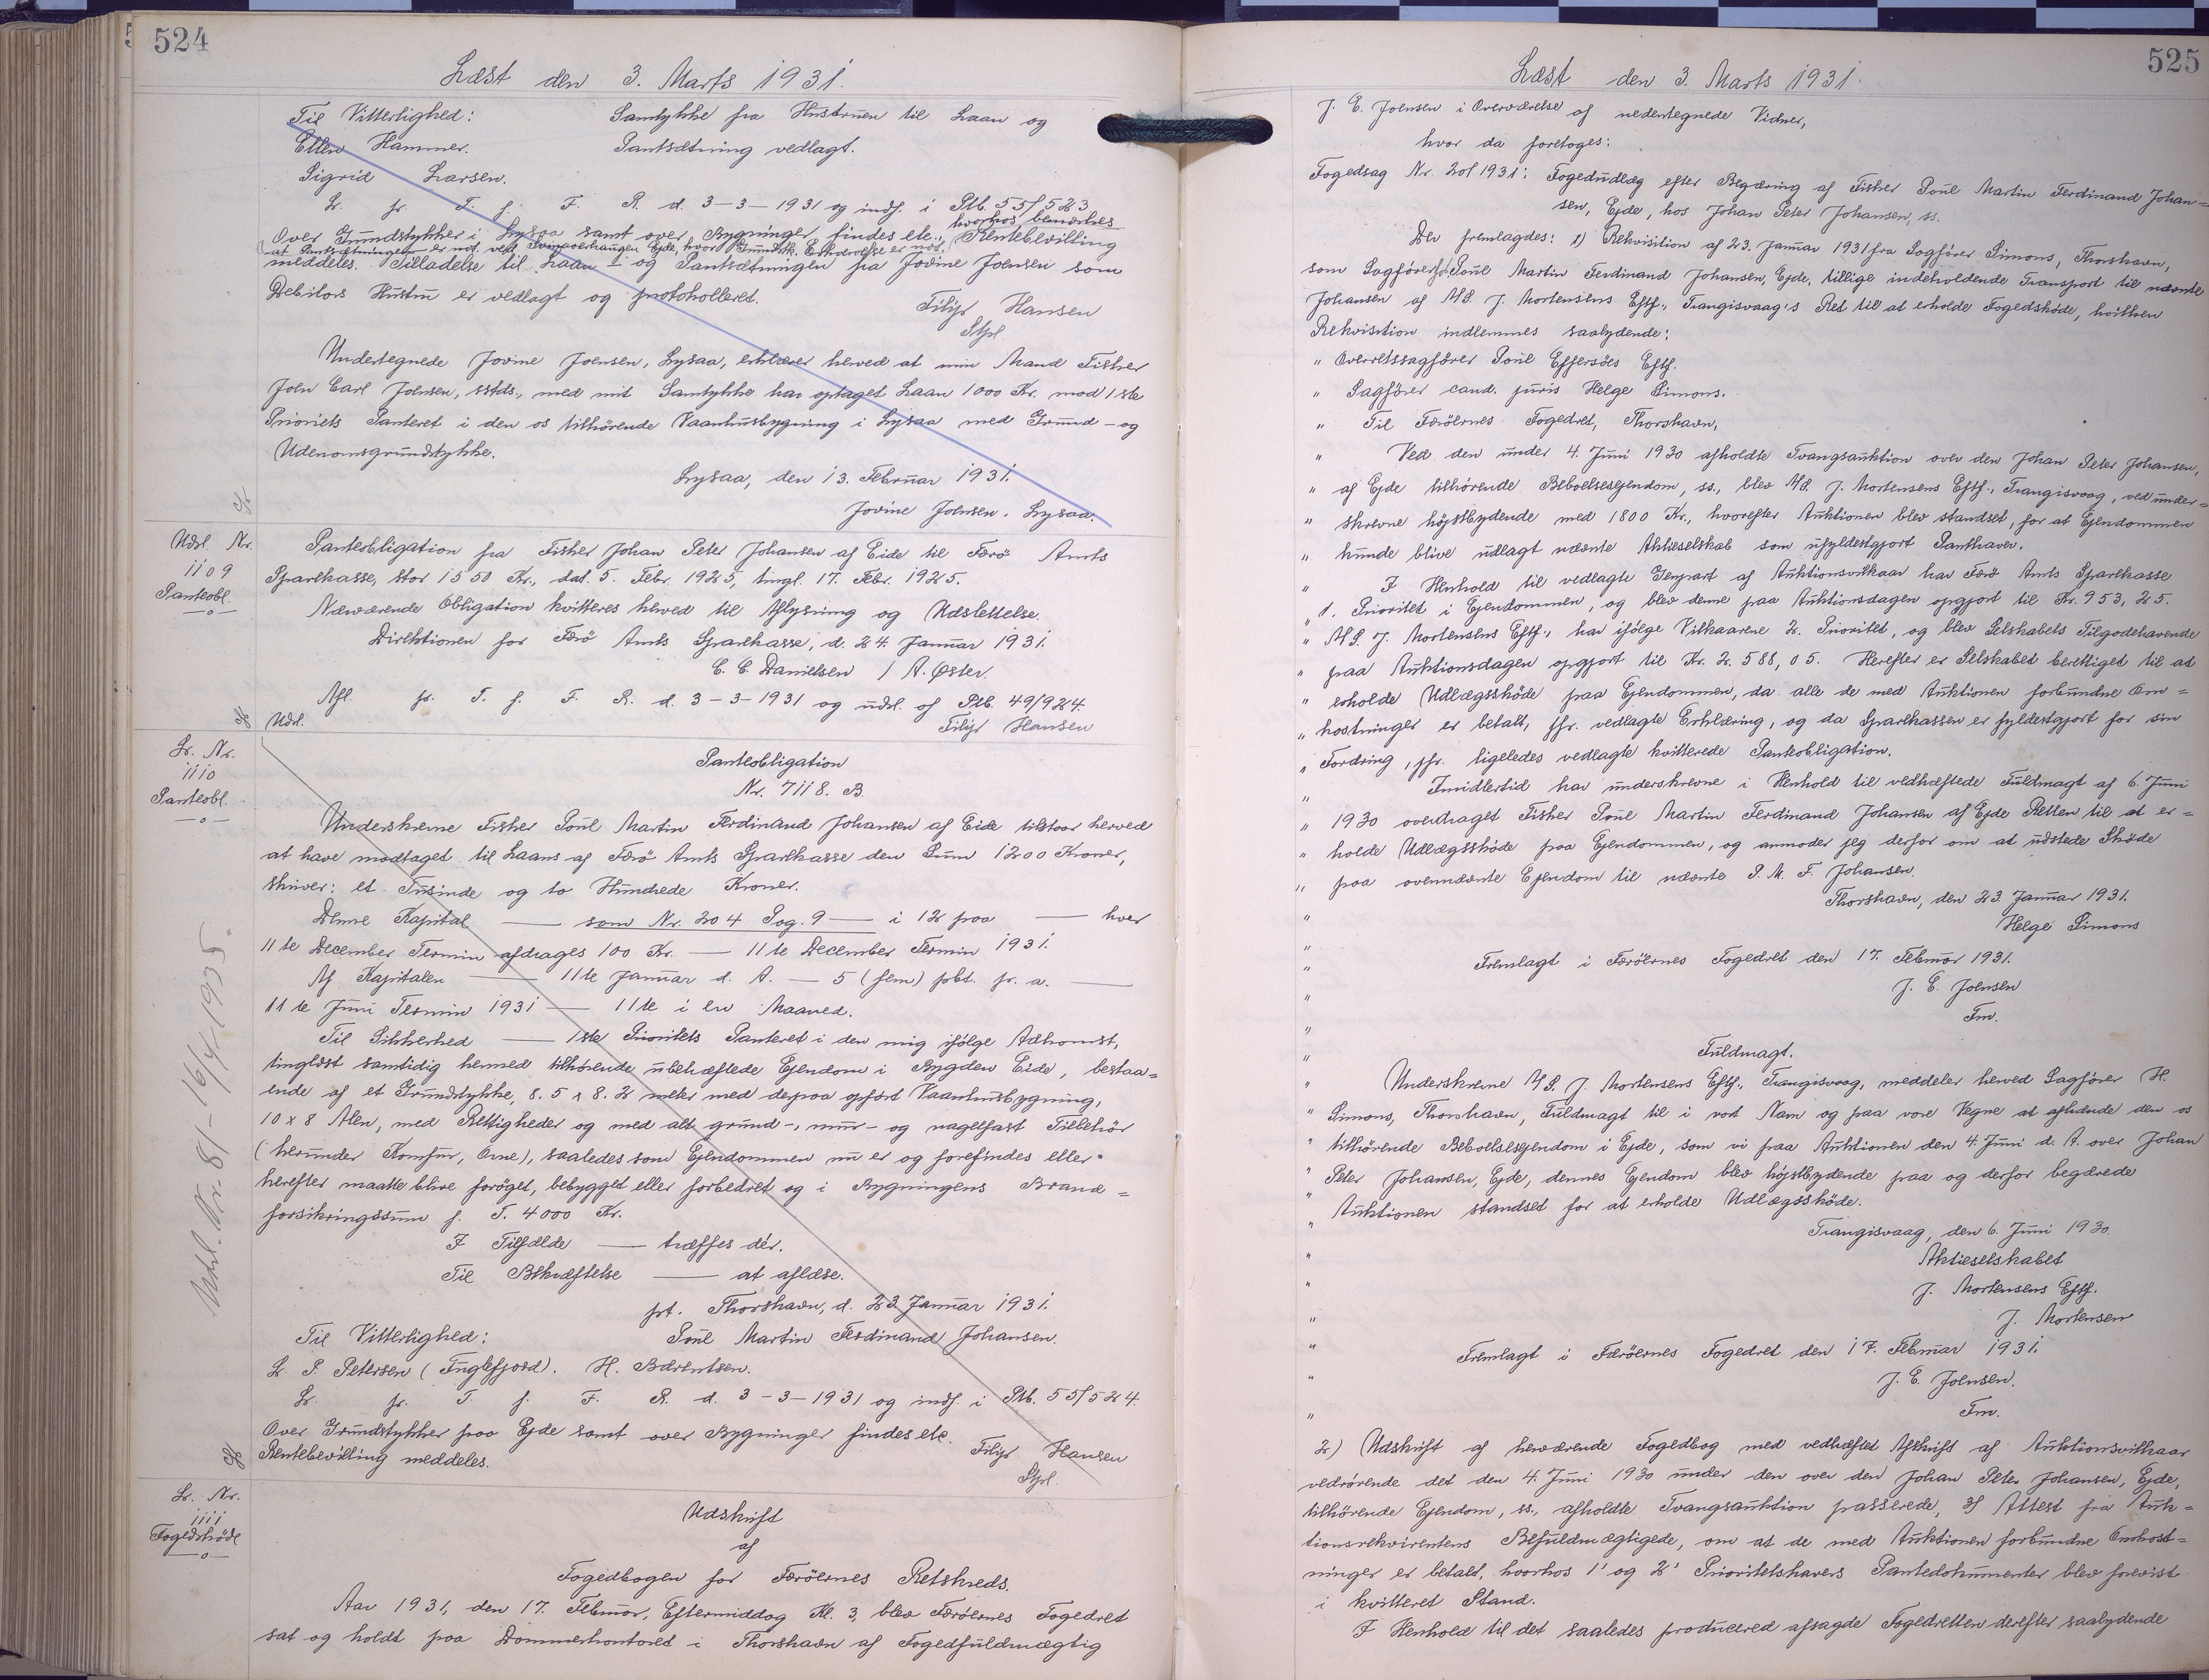 524
Læst den 3. Marts 1931.
Til Vitterlighed: Samtykke fra Hustruen til Laan og
Ellen Hammer. Pantsætning vedlagt.
Sigrid Larsen.
Lr. fr. T. f. F. R. d. 3-3-1931 og indf. i Ptb. 55/523
Over Grundstykker i Lysaa samt over Bygninger findes etc., hvorhos bemærkes
at Pantsætningen er nof. ved Ejde, hvor Grundstk. Erhvervelse er nof. Rentebevilling
meddeles. Tilladelse til Laan I og Pantsætningen fra Jovine Joensen som
Debitors Hustru er vedlagt og protokolleret.
Filip Hansen
Stpl
Undertegnede Jovine Joensen, Lysaa, erklærer herved at min Mand Fisker
Joen Carl Joensen, sstds., med mit Samtykke har optaget Laan 1000 Kr. mod 1ste
Priorits Panteret i den os tilhørende Vaanhusbygning i Lysaa med Grund- og
Udenomsgrundstykke.
Lysaa, den 13. Februar 1931.
Jovine Joensen. Lysaa.
Udsl. Nr.
1109
Panteobl.
Panteobligation fra Fisker Johan Peter Johansen af Eide til Færö Amts
Sparekasse, stor 1550 Kr., dat. 5. Febr. 1925, tingl. 17. Febr. 1925.
Nærværende Obligation kvitteres herved til Aflysning og Udslettelse.
Direktionen for Færö Amts Sparekasse, d. 24. Januar 1931.
C. C. Danielsen / A. Øster.
Afl. fr. T. f. F. R. d. 3-3-1931 og udsl. af Ptb. 49/924.
Udsl. Filip Hansen
Lr. Nr.
1110
Panteobl.
Panteobligation
Nr. 7118. B.
Underskrevne Fisker Poul Martin Ferdinand Johansen af Eide tilstaar herved
at have modtaget til Laans af Færö Amts Sparekasse den Sum 1200 Kroner,
skriver: et Tusinde og to Hundrede Kroner.
Denne Kapital — som Nr. 204 Pag. 9 — i 12 paa — hver
11te December Termin afdrages 100 Kr. — 11te December Termin 1931.
Af Kapitalen — 11te Januar d. A. — 5 (fem) pbt. pr. a. —
11te Juni Termin 1931 — 11te i en Maaned.
Til Sikkerhed — 1ste Prioritets Panteret i den mig ifölge Adkomst,
tinglæst samtidig hermed tilhörende ubehæftede Ejendom i Bygden Eide, bestaa=
ende af et Grundstykke, 8.5 x 8.2 meter med derpaa opfört Vaanhusbygning,
10 x 8 Alen, med Rettigheder og med alt grund-, mur- og nagelfast Tilbehör
(herunder Komfur, Ovne), saaledes som Ejendommen nu er og forefindes eller
herefter maatte blive foröget, bebygget eller forbedret og i Bygningens Brand=
forsikringssum f. T. 4000 Kr.
I Tilfælde — træffes dér.
Til Bekræftelse — at aflæse.
pt. Thorshavn, d. 23. Januar 1931.
Til Vitterlighed: Poul Martin Ferdinand Johansen.
L. P. Petersen (Fuglefjord). H. Bærentsen.
Lr. fr. T. f. F. R. d. 3-3-1931 og indf. i Ptb. 55/524.
Over Grundstykker paa Ejde samt over Bygninger findes etc.
Rentebevilling meddeles. Filip Hansen
Stpl.
Udsl. Nr. 81 - 16/4 1935.
Lr. Nr.
1111
Fogedskøde
Udskrift
af
Fogedbogen for Færöernes Retskreds.
Aar 1931, den 17. Februar, Eftermiddag Kl. 3, blev Færöernes Fogedret
sat og holdt paa Dommerkontoret i Thorshavn af Fogedfuldmægtig
525
Læst den 3. Marts 1931.
J. E. Joensen i Overværelse af nedentegnede Vidner,
hvor da foretoges:
Fogedsag Nr. 20/1931: Fogedudlæg efter Begæring af Fisker Poul Martin Ferdinand Johan=
sen, Ejde, hos Johan Peter Johansen, ss.
Der fremlagdes: 1) Rekvisition af 23. Januar 1931 fra Sagförer Simons, Thorshavn,
som Sagförer for Poul Martin Ferdinand Johansen, Ejde, tillige indeholdende Transport til nævnte
Johansen af A/S. J. Mortensens Eftf., Trangisvaag's Ret til at erholde Fogedsköde, hvilken
Rekvisition indlemmes saalydende:
" Overretssagförer Poul Effersöes Eftf.
" Sagförer cand. juris Helge Simons.
" Til Færöernes Fogedret, Thorshavn.
" Ved den under 4. Juni 1930 afholdte Tvangsauktion over den Johan Peter Johansen,
" af Ejde tilhörende Beboelsesejendom, ss., blev A/S. J. Mortensens Eftf., Trangisvaag, ved under=
" skrevne höjstbydende med 1800 Kr., hvorefter Auktionen blev standset, for at Ejendommen
" kunde blive udlagt nævnte Aktieselskab som ufyldestgjort Panthaver.
" I Henhold til vedlagte Genpart af Auktionsvilkaar har Færö Amts Sparekasse
" 1. Prioritet i Ejendommen, og blev denne paa Auktionsdagen opgjort til Kr. 953,25.
" A/S. J. Mortensens Eftf., har ifölge Vilkaarene 2. Prioritet, og blev Selskabets Tilgodehavende
" paa Auktionsdagen opgjort til Kr. 2.588,05. Herefter er Selskabet berettiget til at
" erholde Udlægssköde paa Ejendommen, da alle de med Auktionen forbundne Om=
" kostninger er betalt, jfr. vedlagte Erklæring, og da Sparekassen er fyldestgjort for sin
" Fordring, jfr. ligeledes vedlagte kvitterede Panteobligation.
" Imidlertid har underskrevne i Henhold til vedhæftede Fuldmagt af 6. Juni
" 1930 overdraget Fisker Poul Martin Ferdinand Johansen af Ejde Retten til at er=
" holde Udlægssköde paa Ejendommen, og anmoder jeg derfor om at udstede Sköde
" paa ovennævnte Ejendom til nævnte P. M. F. Johansen.
" Thorshavn, den 23. Januar 1931.
" Helge Simons
" Fremlagt i Færöernes Fogedret den 17. Februar 1931.
" J. E. Joensen
" Fm.
" Fuldmagt.
" Underskrevne A/S. J. Mortensens Eftf., Trangisvaag, meddeler herved Sagförer H.
" Simons, Thorshavn, Fuldmagt til i vort Navn og paa vore Vegne at afhænde den os
" tilhörende Beboelsesejendom i Ejde, som vi paa Auktionen den 4. Juni d. A. over Johan
" Peter Johansen, Ejde, dennes Ejendom blev höjstbydende paa og derfor begærede
" Auktionen standset for at erholde Udlægssköde.
" Trangisvaag, den 6. Juni 1930.
" Aktieselskabet
" J. Mortensens Eftf.
" J. Mortensen
" Fremlagt i Færöernes Fogedret den 17. Februar 1931.
" J. E. Joensen.
" Fm.
2) Udskrift af herværende Fogedbog med vedhæftet Afskrift af Auktionsvilkaar
vedrörende det den 4. Juni 1930 under den over den Johan Peter Johansen, Ejde,
tilhörende Ejendom, ss., afholdte Tvangsauktion passerede, 3) Attest fra Auk=
tionsrekvirentens Befuldmægtigede, om at de med Auktionen forbundne Omkost=
ninger er betalt, hvorhos 1' og 2' Prioritetshavers Pantedokumenter blev forevist
i kvitteret Stand.
I Henhold til det saaledes producered afsagde Fogedretten derefter saalydende